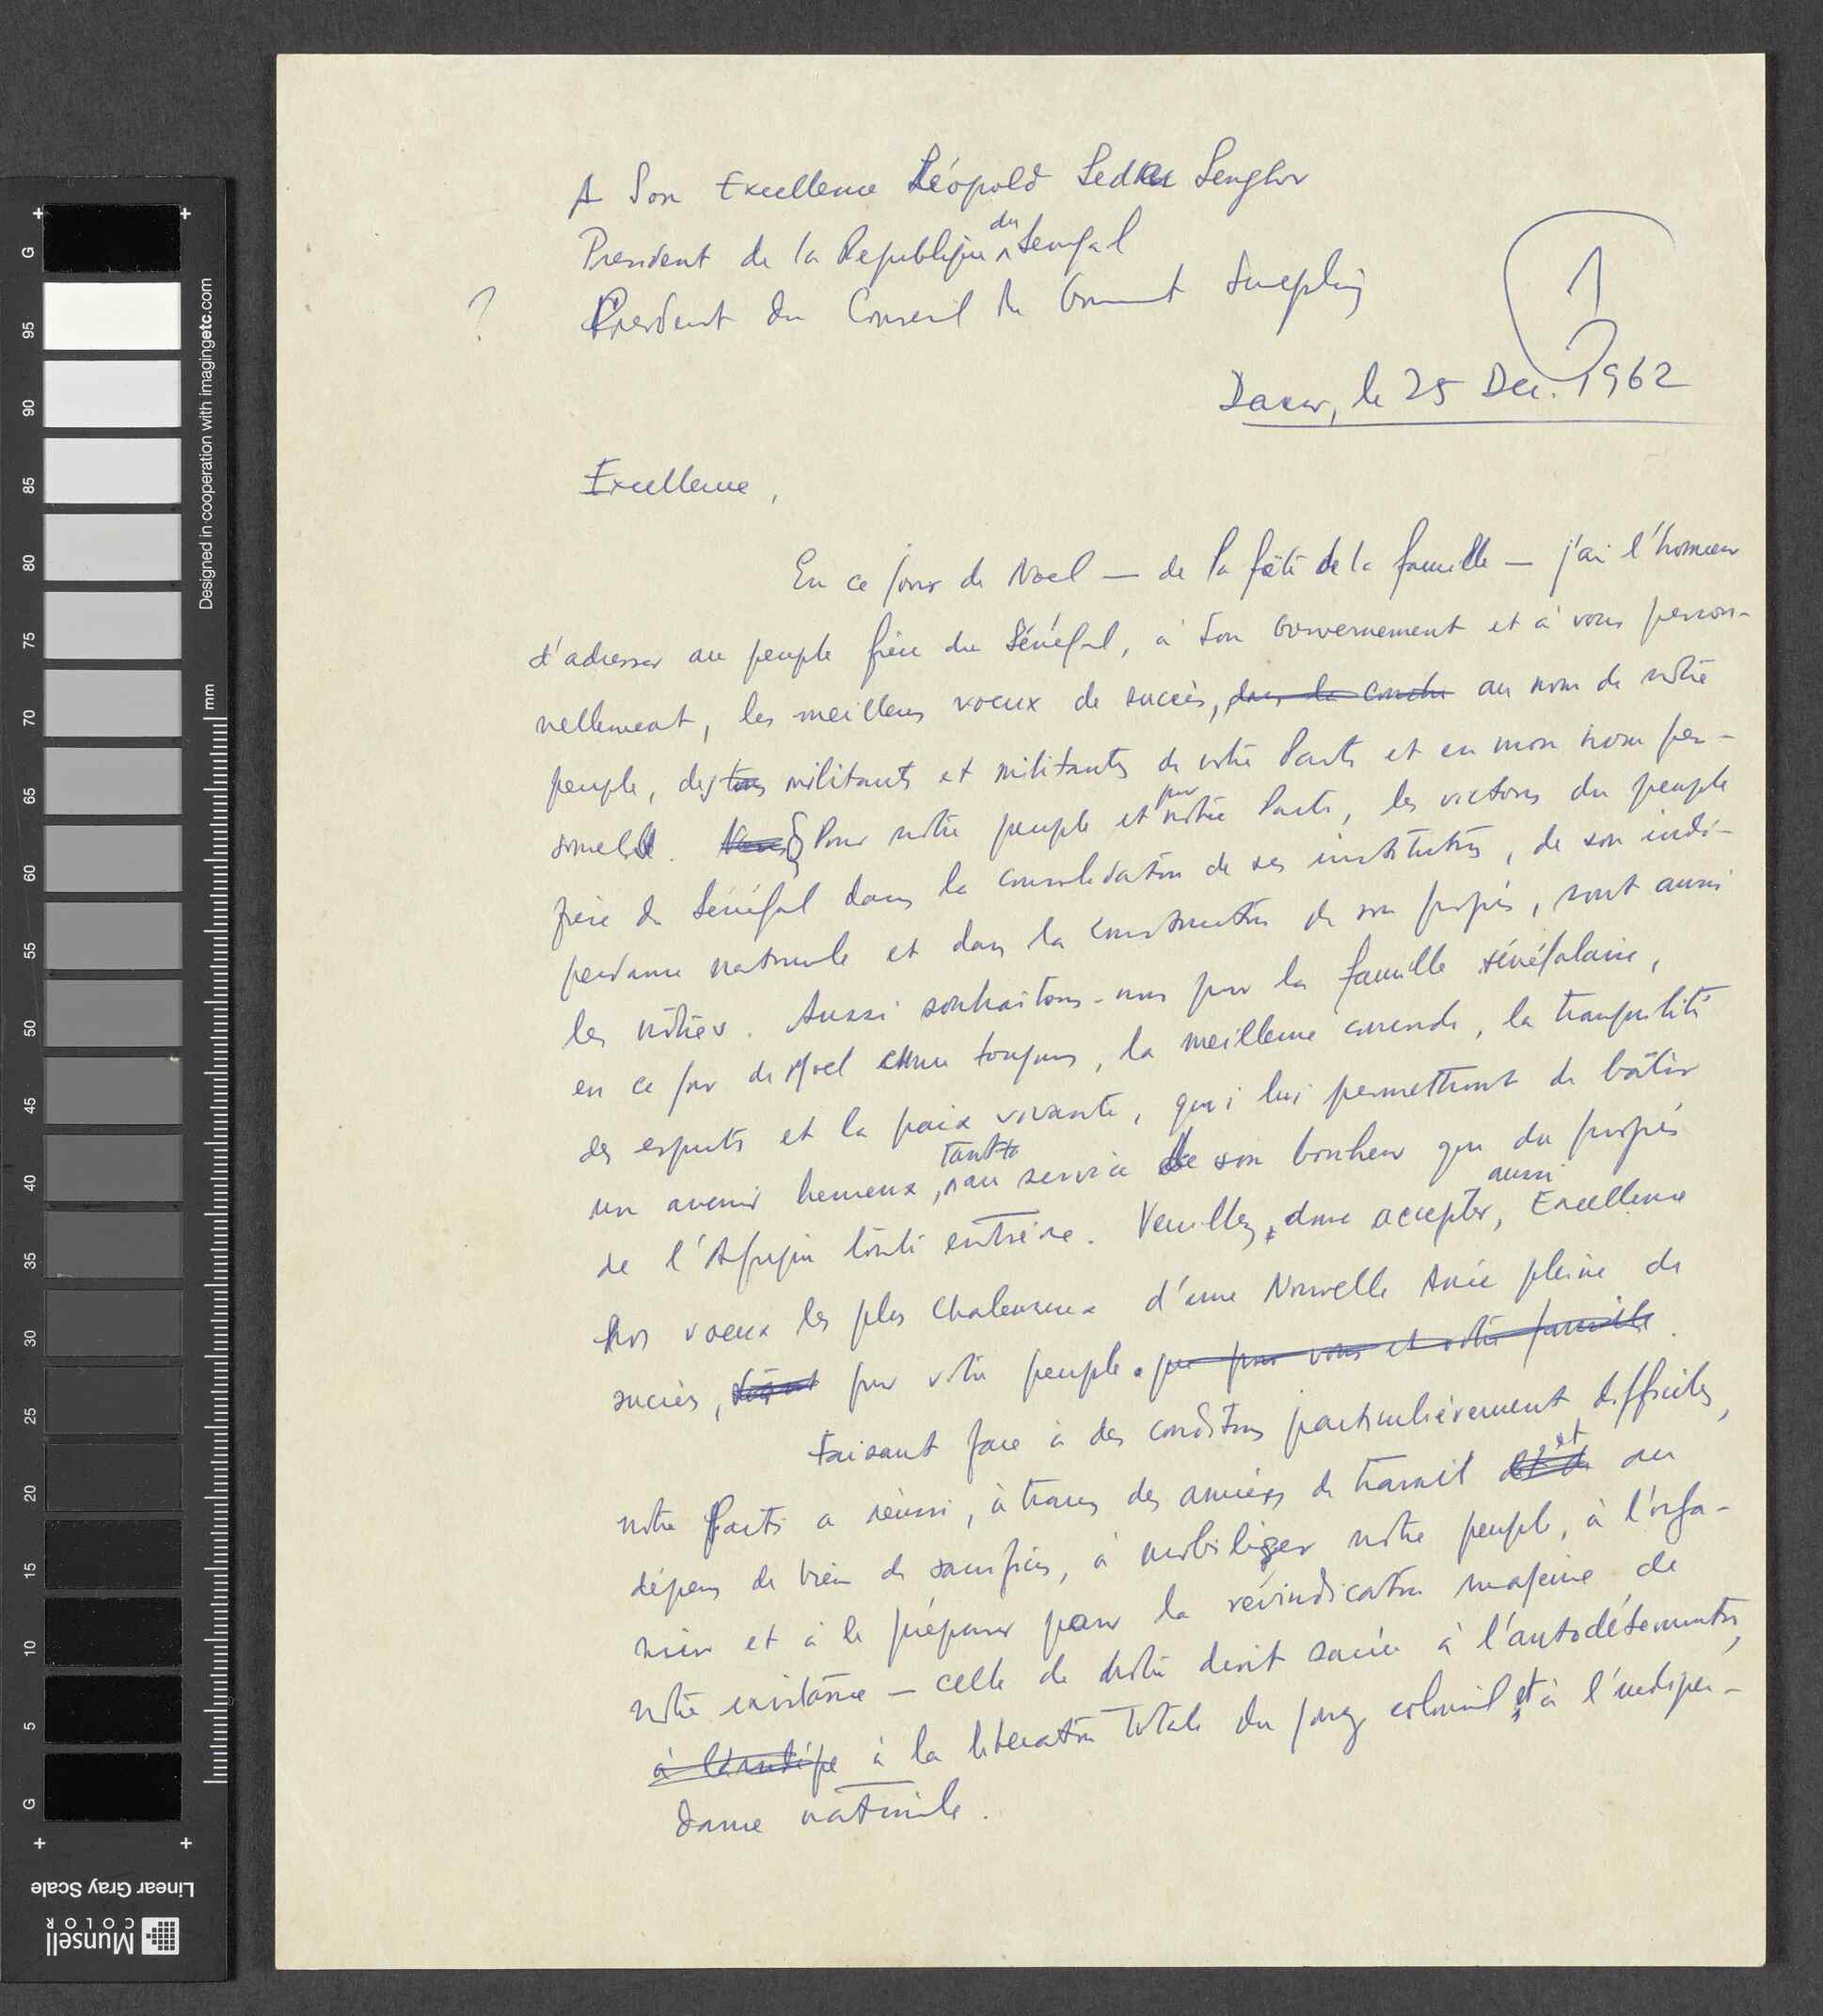 A Son Excellence Léopold Sedar Senghor
President de la Republique du Senegal
? President du Conseil du
1
Dakar, le 25 Dec. 1962
Excellence,
En ce jour de Noel — de la fête de la famille — j'ai l'honneur
d'adresser au peuple frère du Sénégal, à son Gouvernement et à vous person-
nellement, les meilleurs voeux de succès, dans la conduite au nom de notre
peuple, des tous militants et militantes de notre Parti et en mon nom per-
sonnel. Nous Pour notre peuple et pour notre Parti, les victoires du peuple
frère du Sénégal dans la consolidation de ses institutions, de son indé-
pendance nationale et dans la construction de son progrès, sont aussi
les nôtres. Aussi souhaitons-nous pour la famille sénégalaise,
en ce jour de Noel comme toujours, la meilleure concorde, la tranquilité
des esprits et la paix vivante, qui lui permettront de bâtir
un avenir heureux, tant au service de son bonheur que du progrès
de l'Afrique toute entière. Veuillez donc accepter, aussi Excellence
nos voeux les plus chaleureux d'une Nouvelle Anée pleine de
succès, tant pour votre peuple que pour vous et votre famille.
Faisant face à des conditions particulièrement difficiles,
notre Parti a réussi, à travers des années de travail et au
dépens de bien de sacrifices, à mobiliser notre peuple, à l'orga-
niser et à le préparer pour la révindication majeure de
notre existence — celle de notre droit sacré à l'autodétermination,
à l'indépe à la liberation totale du joug colonial et à l'indépen-
dance nationale.
Designed in cooperation with imagingetc.com
mm
G
95
90
85
80
75
70
65
60
55
50
45
40
35
30
25
20
15
10
5
G
Linear Gray Scale
Munsell
COLOR